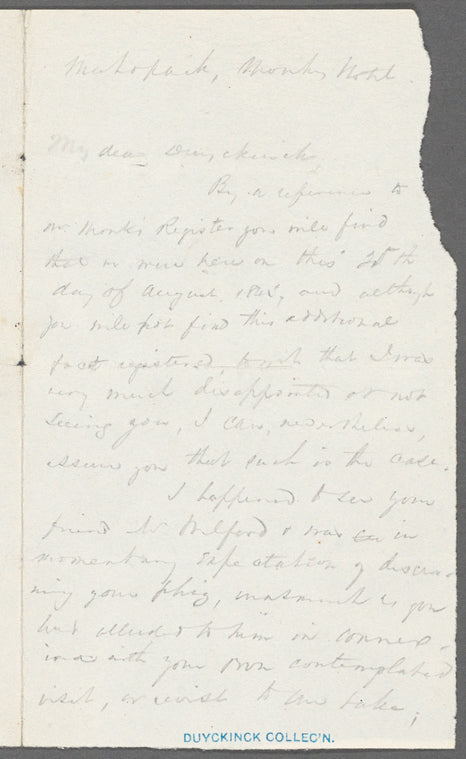 Mahopack, Monks Hotel.
My dear Duyckinck,
By a reference to
Mr Monk's Register you will find
that we were here on this 20th
day of August, and although
you will not find this additional
fact registered, to wit that I was
very much disappointed at not
seeing you, I can, nevertheless,
assure you that such is the case.
I happened to see your
friend Mr Welford & was in
momentary expectation of discer-
ning your phiz, inasmuch as you
had alluded to him in connex-
ion with your own contemplated
visit, or revisit to our Lake;
DUYCKINCK COLLEC'N.